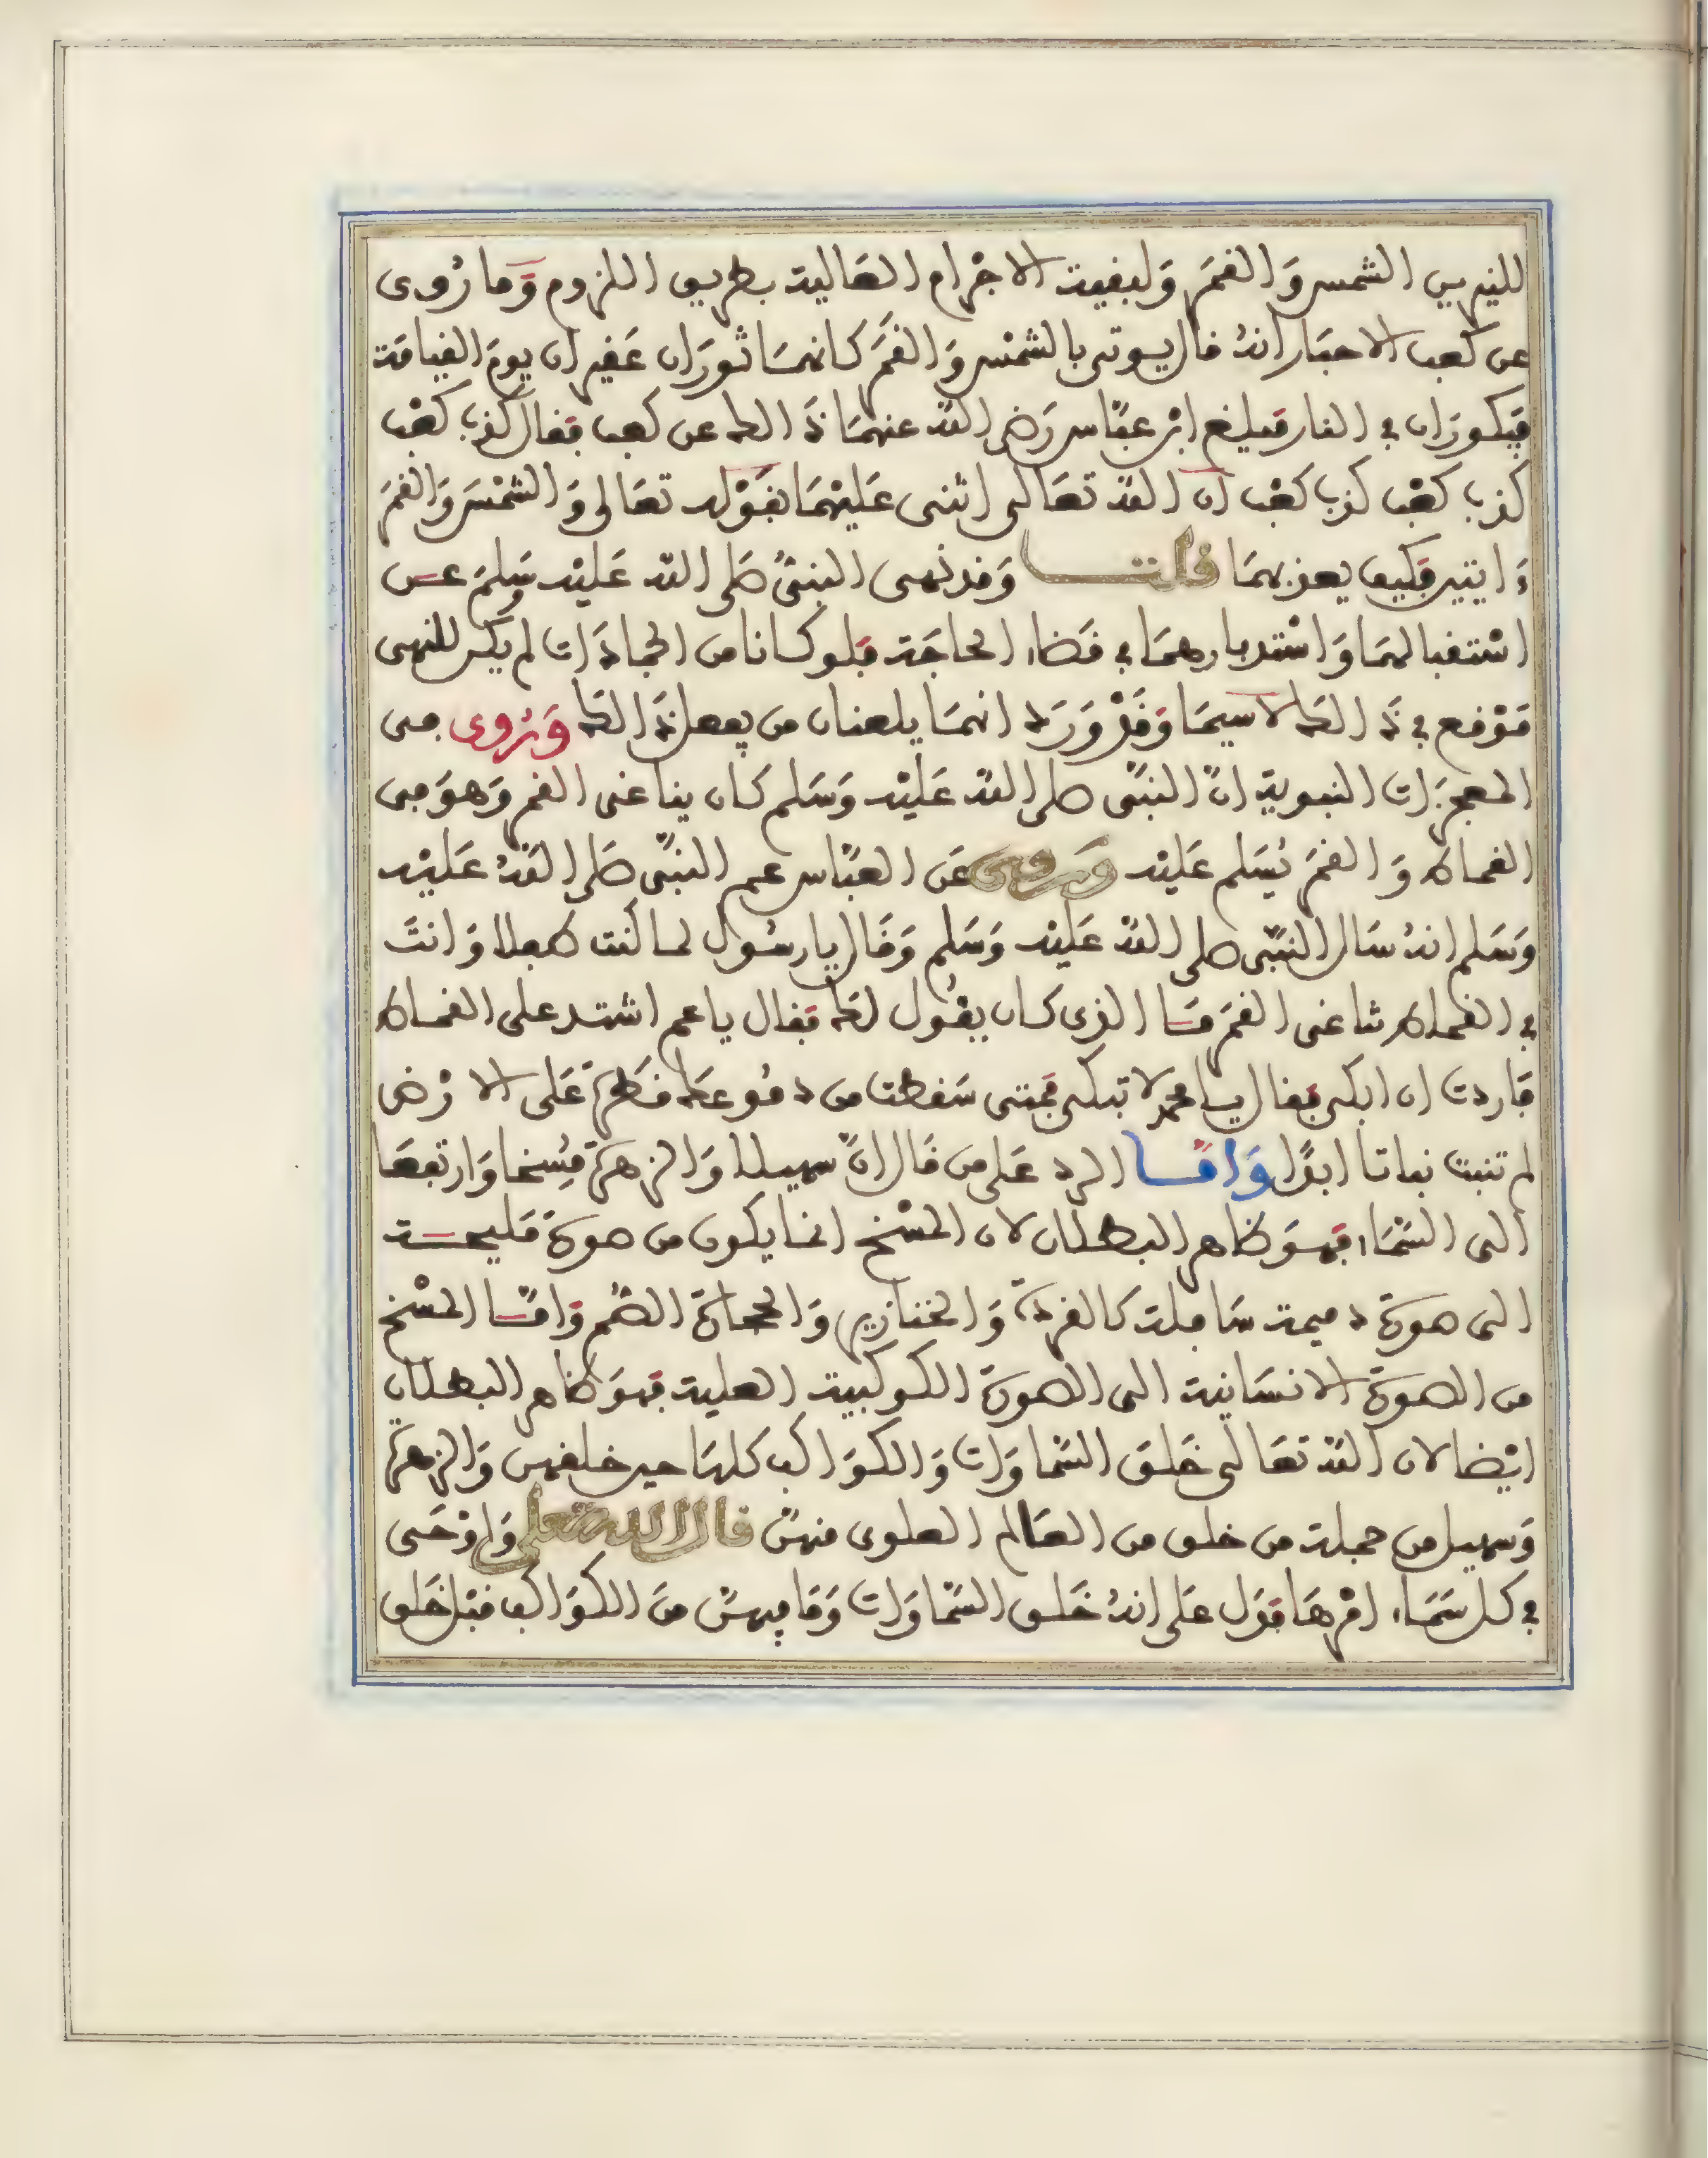 للنيرين الشمس وَالقمَر وَلبقية الاجْرام العَالية بطريق اللزوم وَمَا رُوى
عن كعب الاحبَار انهُ قال يوتى بالشمْس وَالقمَر كانهمَا ثورَان عَفيران يومَ القيامَة
فيكورَان في النار فبلغ ابْن عبّاس رَضى اللّه عنهمَا ذَالك عن كعب فقال كذب كعْب
كذب كعْب كذب كعْب ان اللّه تعَالى اثنى عَليْهمَا بقوْله تعَالى وَالشمْسَ وَالقمَرَ
دَايبين فكيف يعذبهمَا قلت وَقد نهى النبىُّ صَلى اللّه عَليْه وَسَلمَ عن
اسْتقبالهمَا وَاسْتدبارهمَا في قضَاء الحاجَة فلو كانا من الجمادَات لم يكن للنهى
مَوْقع في ذَالك لا سيمَا وَقَدْ وَرَد انهمَا يلعنان من يفعل ذَالك وَرُوى من
المعجزَات النبوية انّ النبىّ صلى اللّه عَليْه وَسَلم كان يناغى القمر وَهوَ من
القماط وَالقمَر يُسَلم عَليْه وَروى عَن العبّاس عم النبىّ صَلى اللّهُ عَليْه
وَسَلم انهُ سَال النبىّ صلى اللّه عَليْه وَسَلم وَقَال يا رسُول لما كنت طفلا وَانتَ
في القماط تناغى القمَر مَا الذى كان يقُول لك فقال يا عم اشتد على القماط
فاردت ان ابكى فقال يا محمد لا تبكى فمتى سَقطت من دمُوعك قطرَة عَلى الارْض
لم تنبت نباتا ابدًا وَامّا الرد عَلى من قَال انّ سهيلا وَالزهرَة مُسِخا وَارتفعَا
الى السّمَاء فهوَ ظاهر البطلان لان المسْخ انما يكون من صورَة مَليحة
الى صورَة دميمة سَافلة كالقردَة وَالخنازير وَالحجارَة الصُّم وَامّا المسْخ
من الصورَة الانسَانية الى الصورَة الكوكبية العلية فهوَ ظاهر البطلان
ايْضا لان اللّه تعَالى خَلق السّماوَات وَالكوَاكب كلهَا حين خلقهن وَالزهرَة
وَسهيل من جملة من خلق من العَالم العلوى منهنّ قال اللّه تعلى وَاوْحَى
في كل سَمَاء امْرهَا فدَل عَلى انهُ خَلق السّماوَات وَمَا فيهنّ منَ الكوَاكب قبْل خَلق